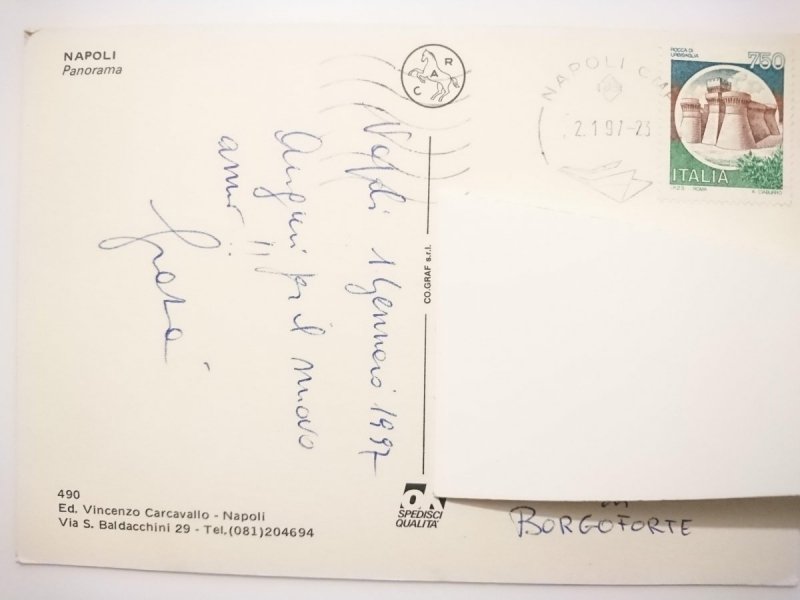 NAPOLI
Panorama
CAR
Napoli 1 Gennaio 1997
Auguri per il nuovo
anno !!
NAPOLI CMP
2.1.97-23
ROCCA DI
URBISAGLIA
750
ITALIA
I.P.Z.S. ROMA
CO.GRAF s.r.l.
490
Ed. Vincenzo Carcavallo - Napoli
Via S. Baldacchini 29 - Tel.(081)204694
OK
SPEDISCI
QUALITA'
BORGOFORTE